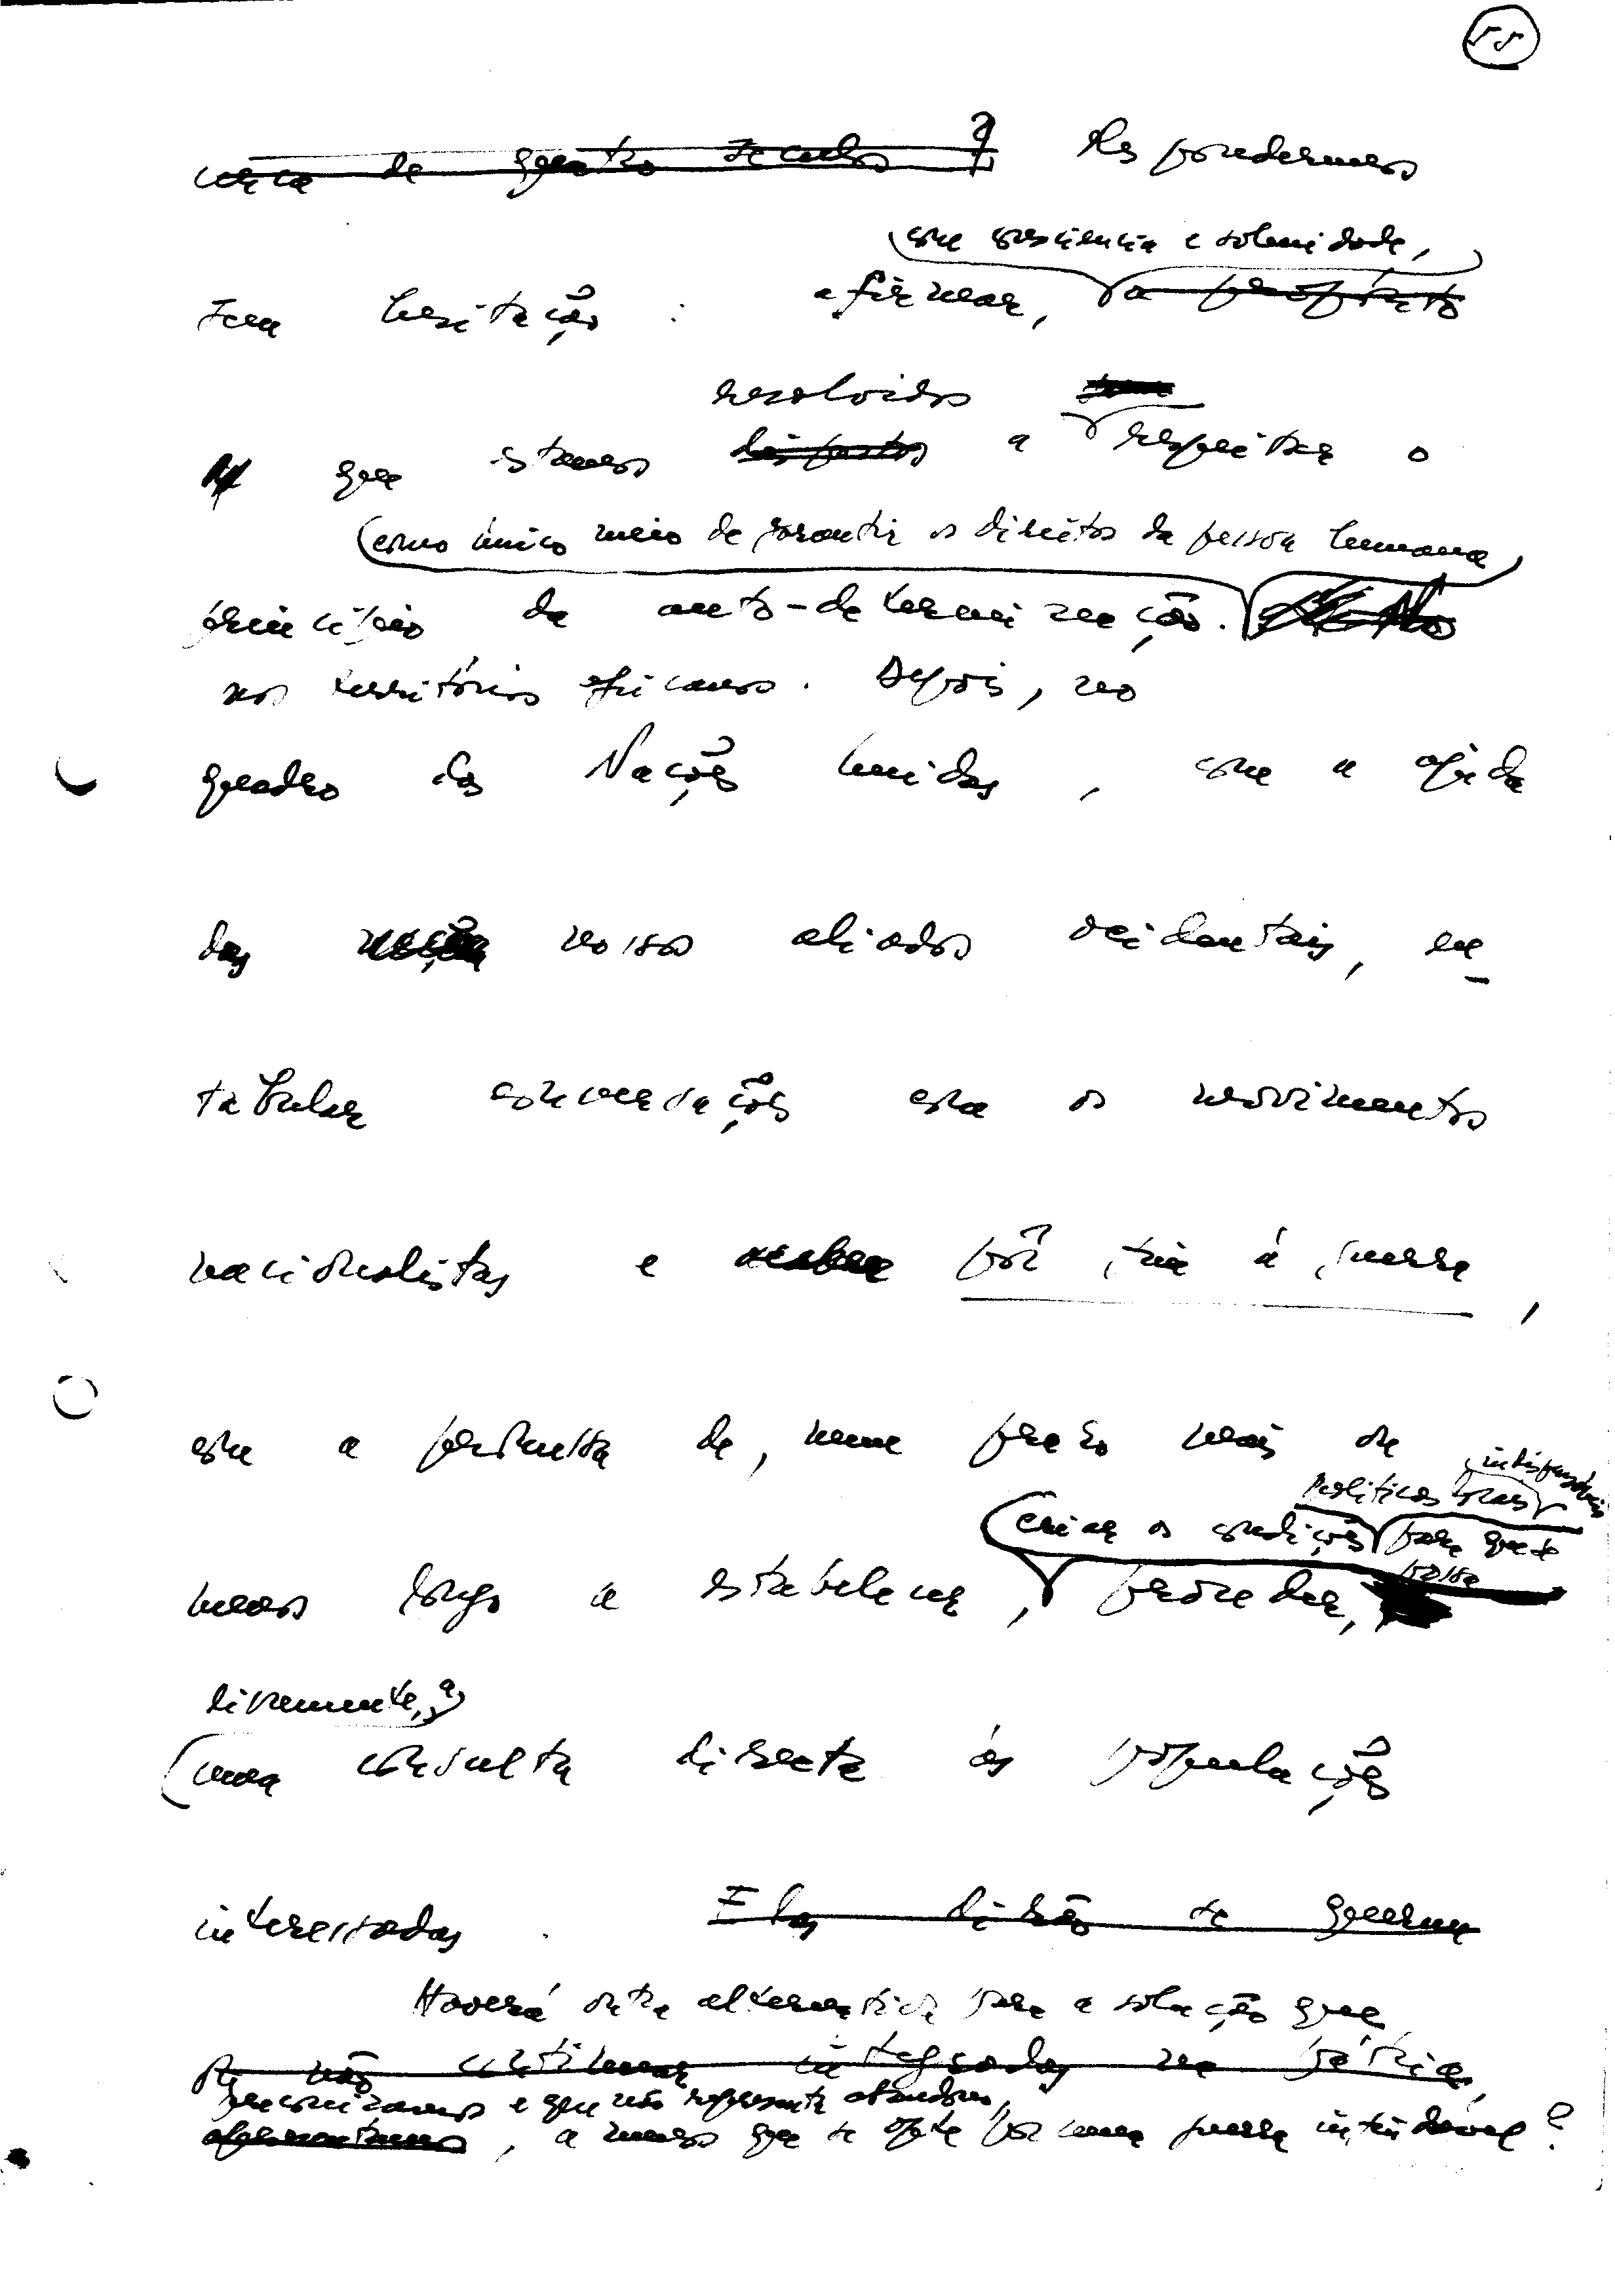 55
cerca de quatro séculos? Respondemos
com consciência e solenidade,
sem hesitação: afirmar, a propósito
resolvidos
que estamos dispostos a respeitar o
como único meio de garantir os direitos da pessoa humana
princípio da auto-determinação.
nos territórios africanos. Depois, no
quadro das Nações Unidas, com a ajuda
dos nossos aliados ocidentais, en-
tabular conversações com os movimentos
nacionalistas e acabar pôr fim à guerra,
com a promessa de, num prazo mais ou
indispensáveis
políticas locais
criar as condições para que se
possa
menos longo a estabelecer, proceder,
livremente, a
uma consulta directa às populações
interessadas. Elas dirão se querem
Haverá outra alternativa para a solução que
ou não continuar integradas na pátria,
preconizamos e que não represente abandono,
, a menos que se opte por uma guerra infindável?